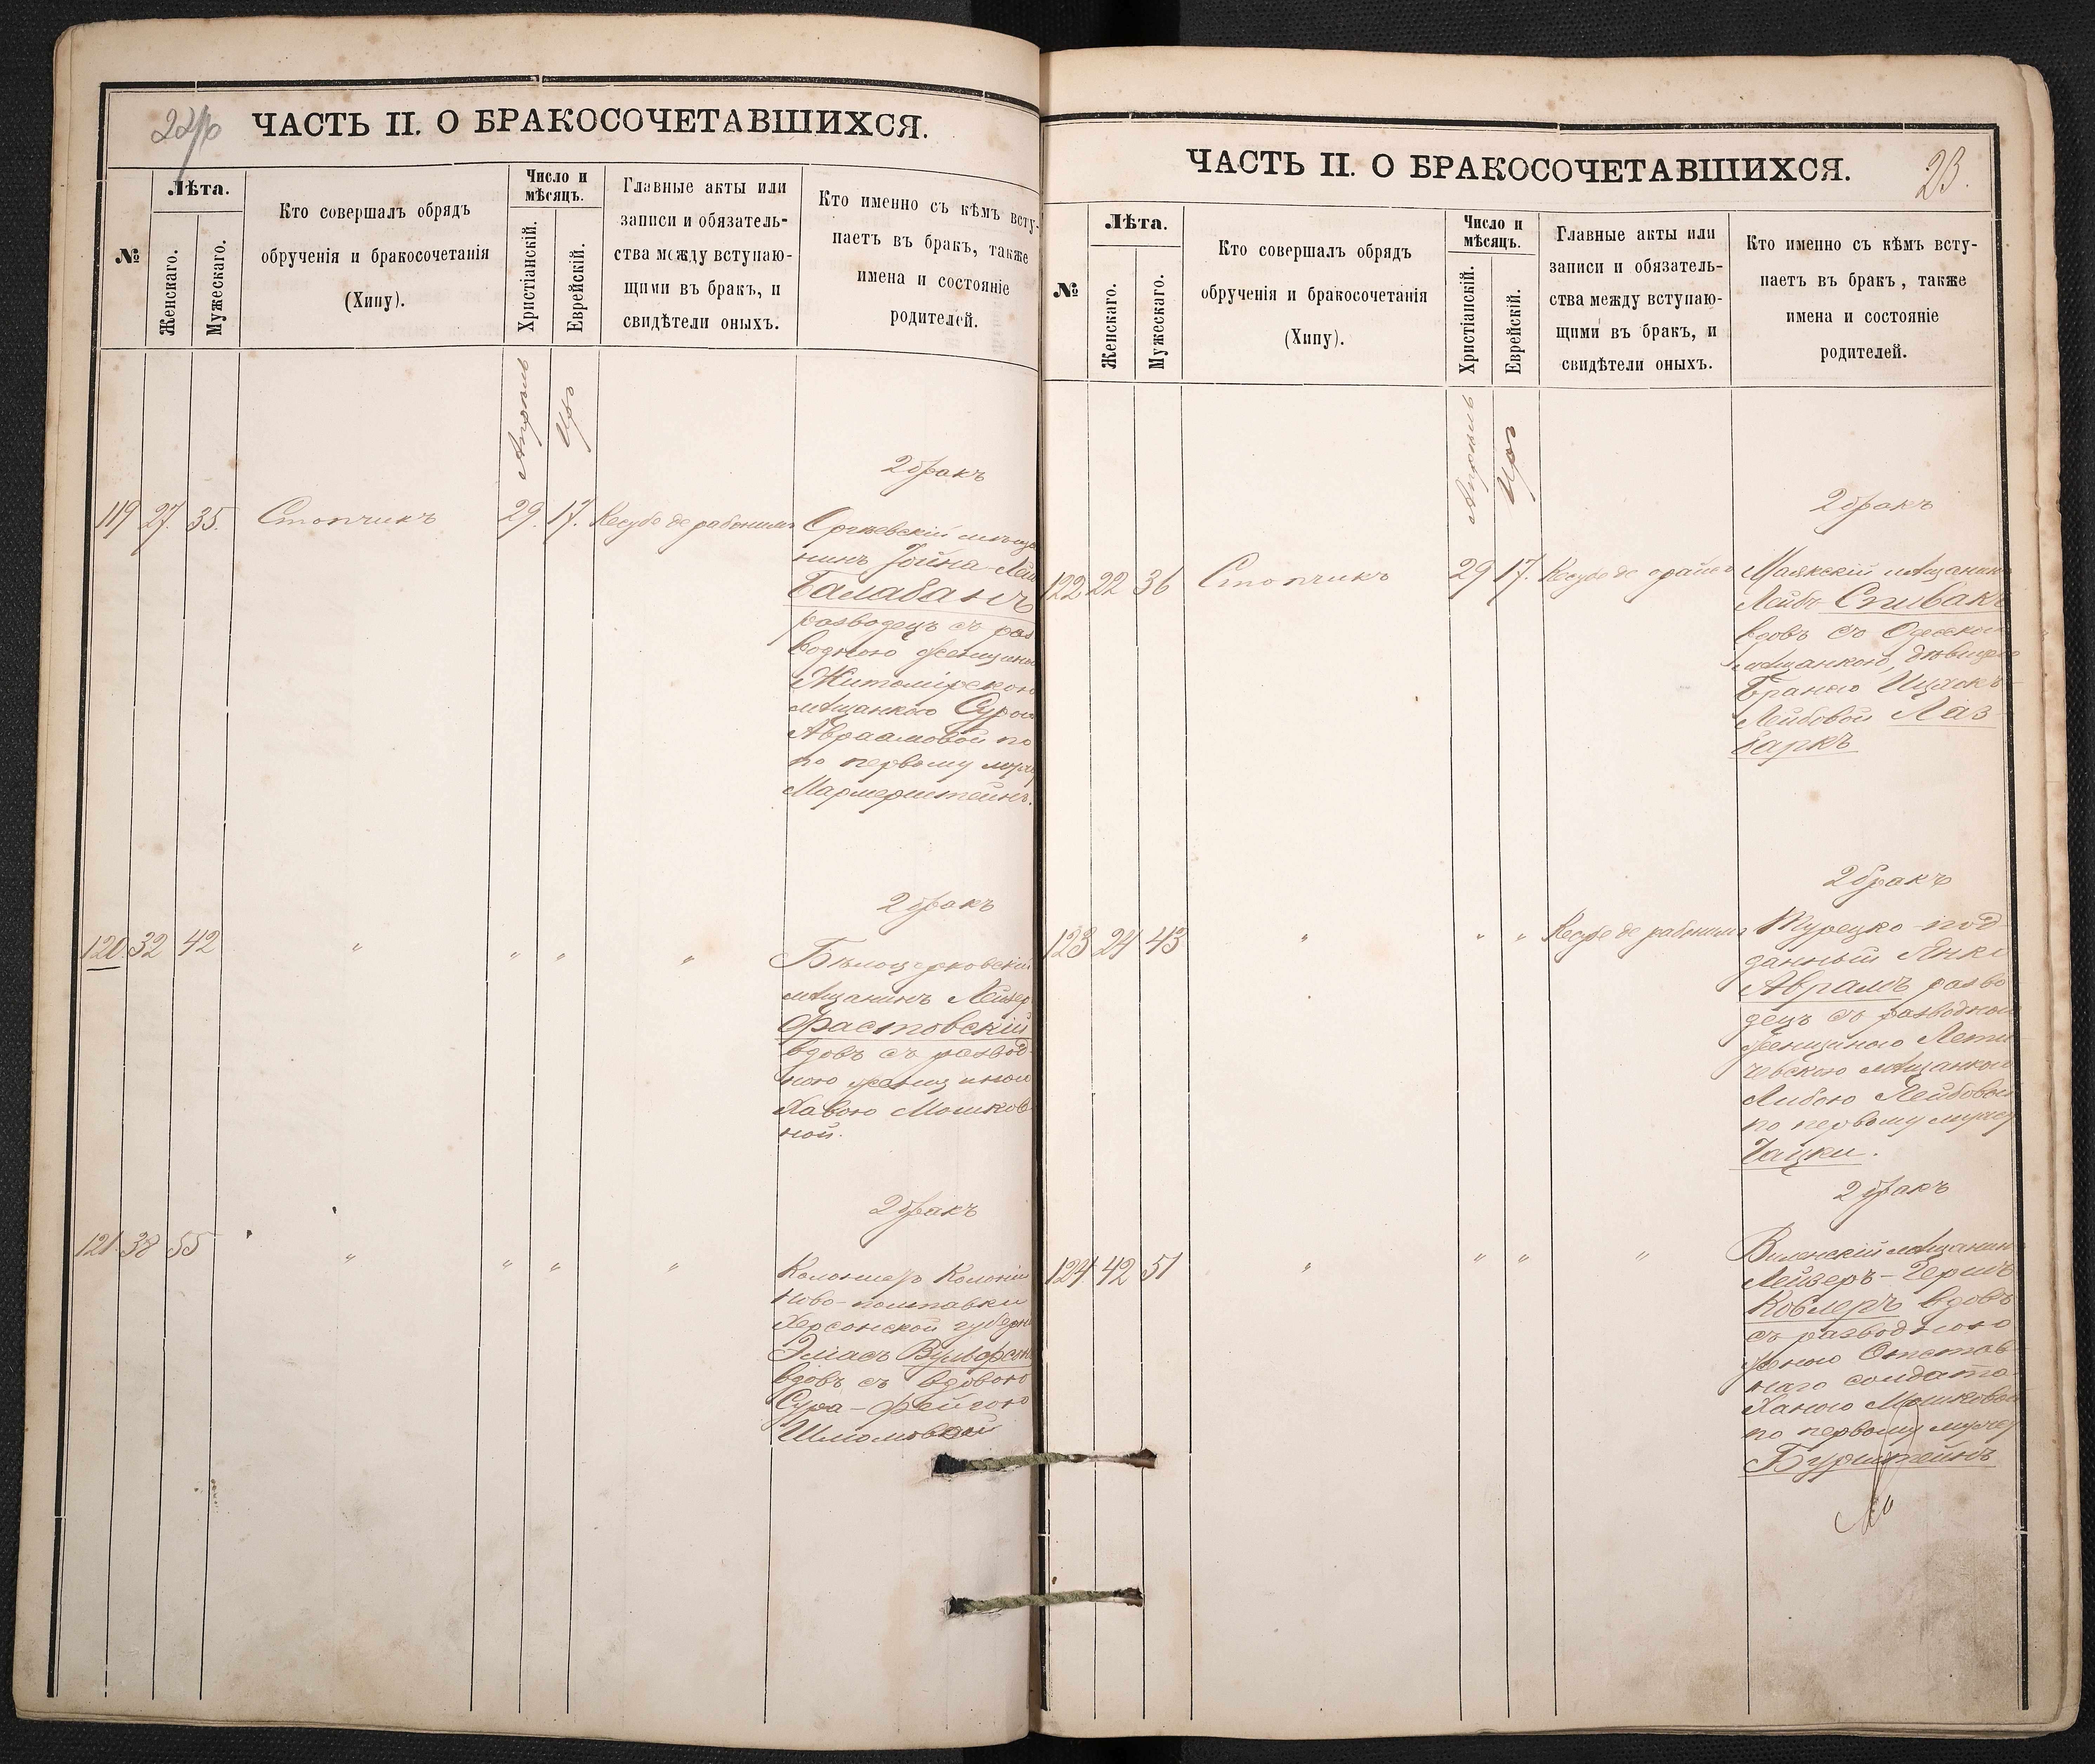 ЧАСТЬ II. О БРАКОСОЧЕТАВШИХСЯ.
№
Лѣта.
Женскаго.
Мужескаго.
Кто совершалъ обрядъ
обрученія и бракосочетанія
(Хипу).
Число и
мѣсяцъ.
Христіанскій.
Еврейскій.
Главные акты или
записи и обязатель-
ства между вступаю-
щими въ бракъ, и
свидѣтели оныхъ.
Кто именно съ кѣмъ всту-
паетъ въ бракъ, также
имена и состояніе
родителей.
Апрѣль
Иръ
2 бракъ
119 27. 35. Стопчикъ 29. 17. Кесубе де рабонимъ
Оргѣевскій мѣща
нинъ Іойна-Лей
Балабанъ
разводецъ съ раз
водною женщиною
Житомірскою
мѣщанкою Сурою
Авраамовой по
по первому мужу
Мармерштейнъ.
2 бракъ
120. 32 42 " " " "
Бѣлоцерковскій
мѣщанинъ Лейзер
Фастовскій
вдовъ съ развод-
ною женщиною
Хавою Мошков-
ной.
2 бракъ
121. 38 55 " " " "
Колонистъ Колоніи
Ново-полтавки
Херсонской губерн
Эліасъ Вульфсон
вдовъ съ вдовою
Сура-Фейгою
Шлиомовной
ЧАСТЬ II. О БРАКОСОЧЕТАВШИХСЯ.
23.
№
Лѣта.
Женскаго.
Мужескаго.
Кто совершалъ обрядъ
обрученія и бракосочетанія
(Хипу).
Число и
мѣсяцъ.
Христіанскій.
Еврейскій.
Главные акты или
записи и обязатель-
ства между вступаю-
щими въ бракъ, и
свидѣтели оныхъ.
Кто именно съ кѣмъ всту-
паетъ въ бракъ, также
имена и состояніе
родителей.
Апрѣль
Иръ
2 бракъ
122 22 36 Стопчикъ 29 17. Кесубе де
Маякскій мѣщанинъ
Лейбъ Спивакъ
вдовъ съ Одесскою
мѣщанкою, дѣвицею
Бранею Ицхокъ-
Лейбовой Лаз-
баркъ
2 бракъ
123 24 43 " " " Кесубе де рабонимъ
Турецко-под
данный Янкель
Аврамъ разво
децъ съ разводною
женщиною Лети
чевскою мѣщанкою
Либою Лейбовой
по первому мужу
Чацки.
2 бракъ
124 42 51 " " " "
Виленскій мѣщанинъ
Лейзеръ-Бершъ
Ковлеръ вдовъ
съ разводною
женою Отстав-
наго солдата
Ханою Мошковой
по первому мужу
Бурштейнъ